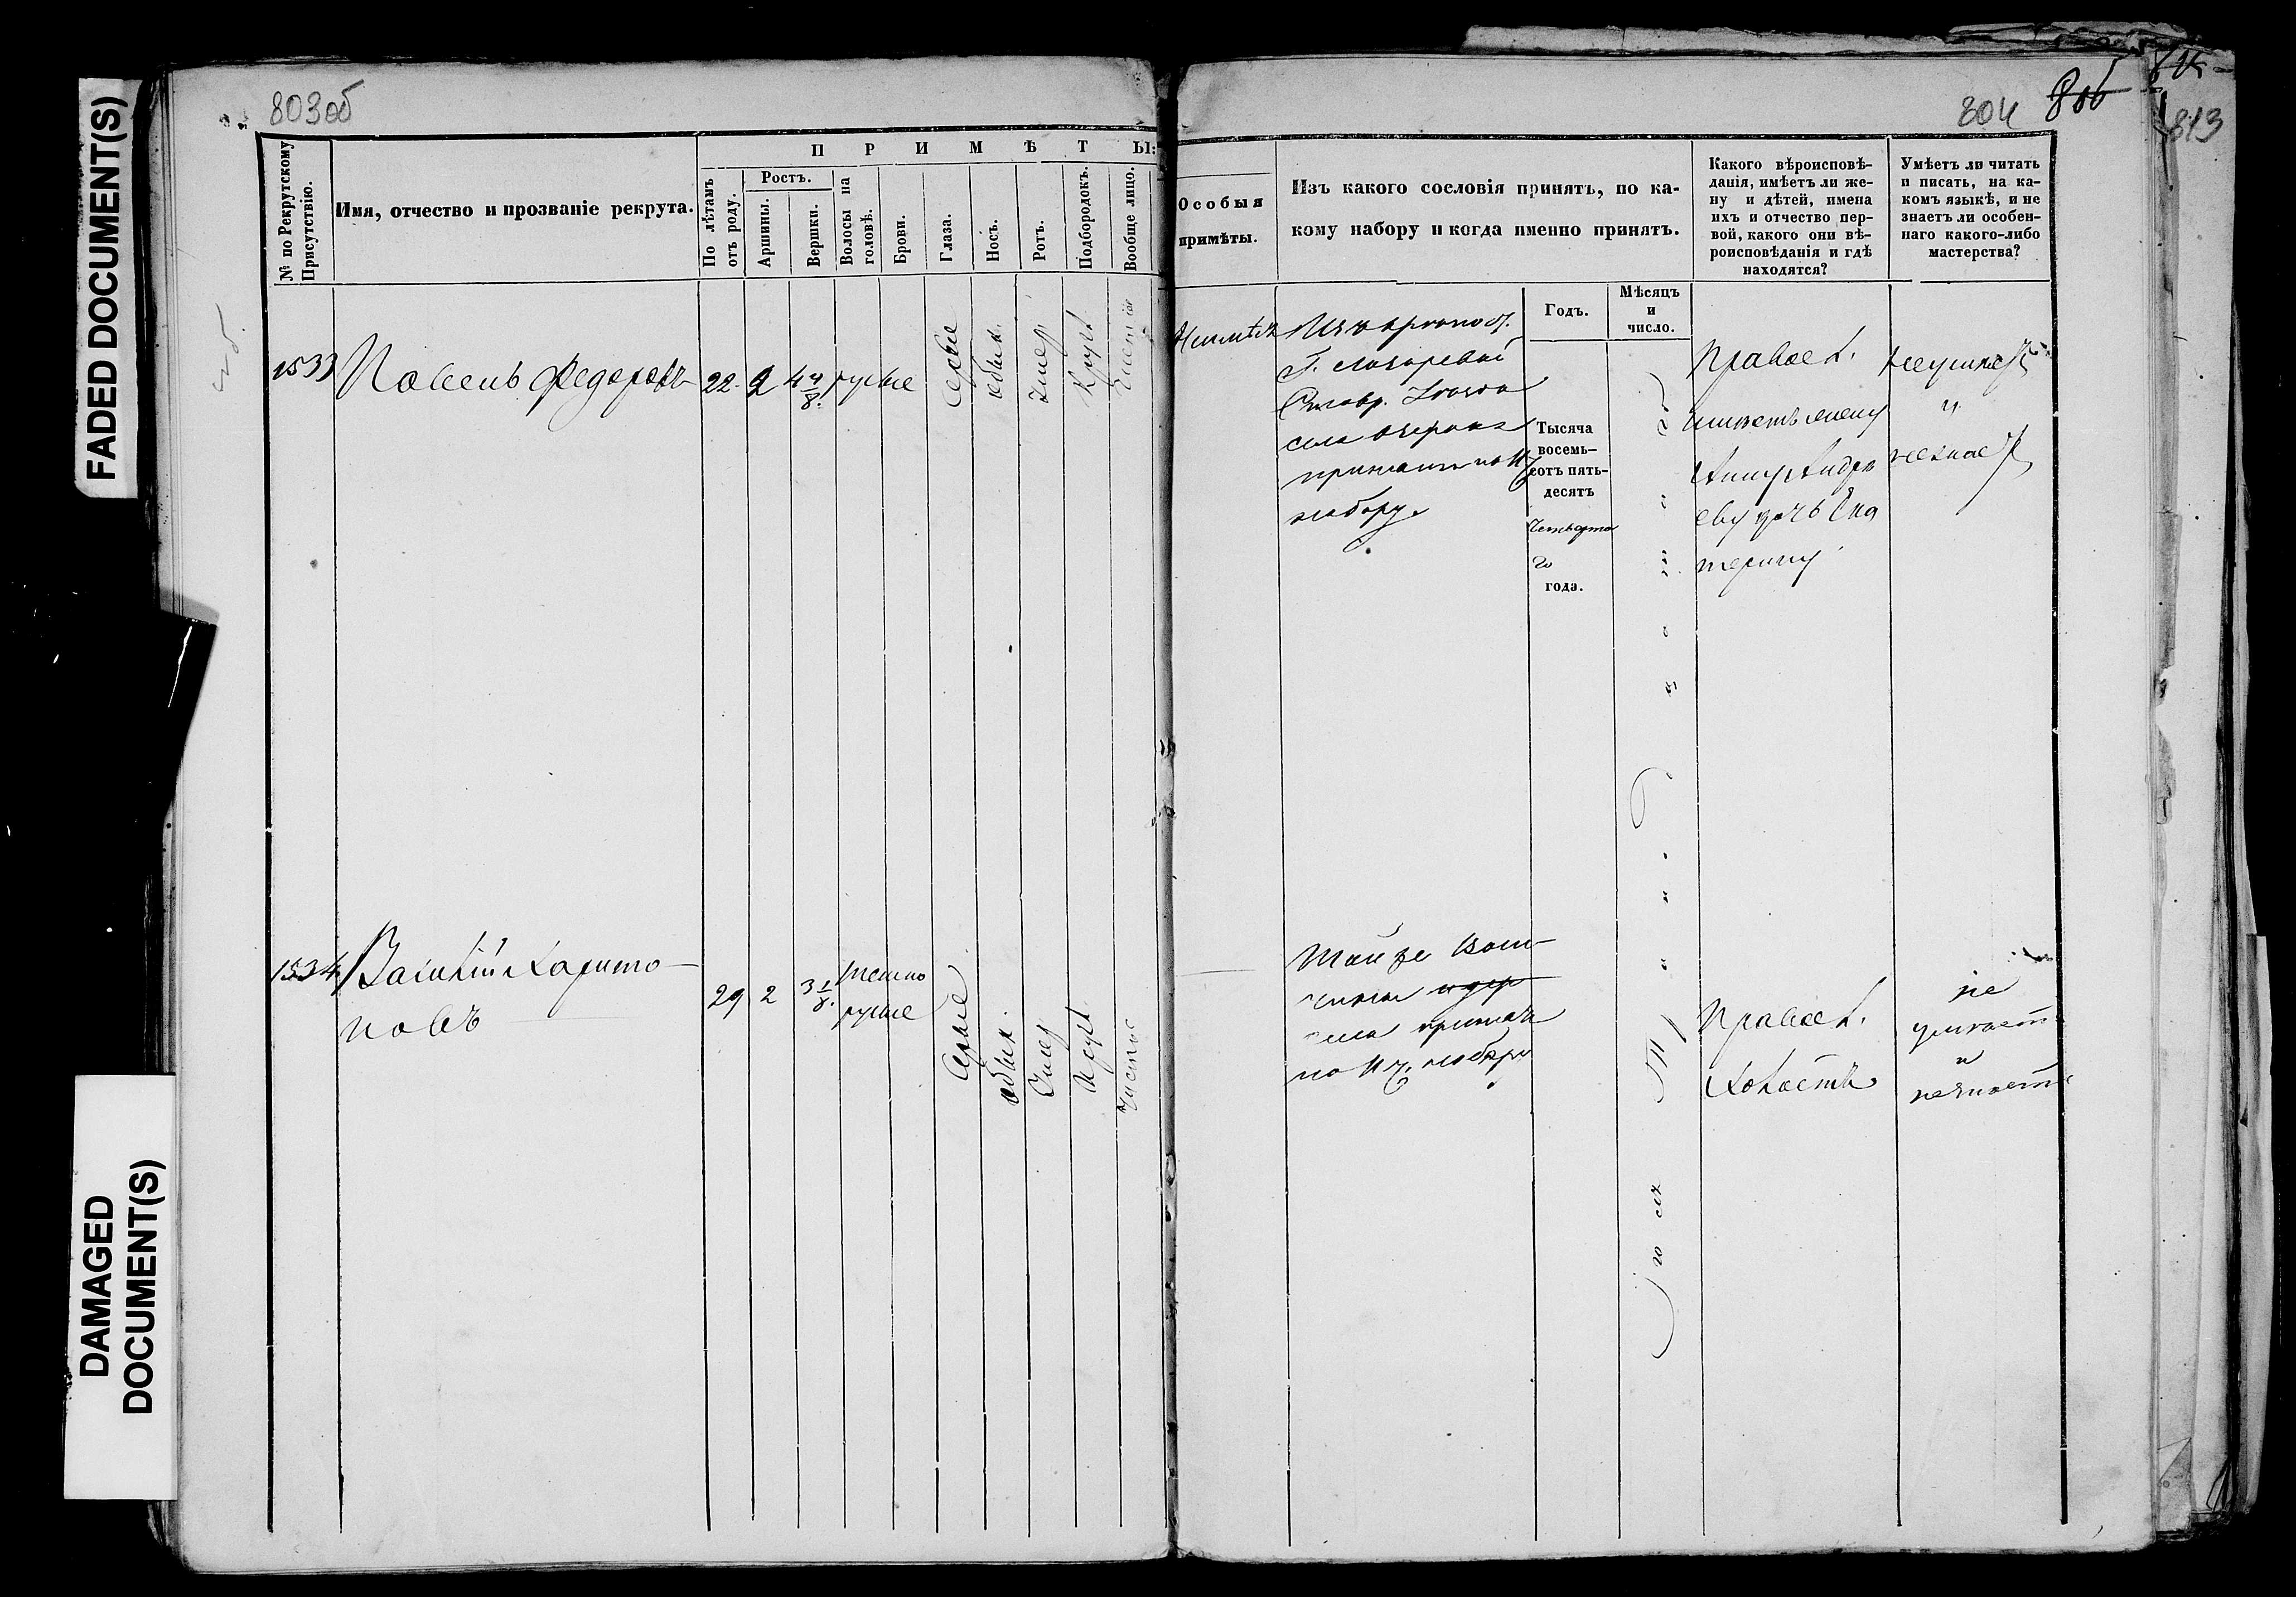 FADED DOCUMENT(S)
DAMAGED
DOCUMENT(S)
803об
№ по Рекрутскому
Присутствію.
Имя, отчество и прозваніе рекрута.
ПРИМѢТЫ:
По лѣтамъ
отъ роду.
Ростъ.
Аршины.
Вершки.
Волосы на
головѣ.
Брови.
Глаза.
Носъ.
Ротъ.
Подбородокъ.
Вообще лицо.
1533
Павелъ Федоровъ
22
2
4 4/8
русые
Серые
обыкн.
Умер.
Кругл.
Чистое
1534
Василій Харито-
новъ
29
2
3 1/8
темно
русые
Серые
обыкн.
Умер.
Кругл.
Чистое
804
813
Особыя
примѣты.
Изъ какого сословія принятъ, по ка-
кому набору и когда именно принятъ.
Какого вѣроисповѣ-
данія, имѣетъ ли же-
ну и дѣтей, имена
ихъ и отчество пер-
вой, какого они вѣ-
роисповѣданія и гдѣ
находятся?
Умѣетъ ли читать
и писать, на ка-
комъ языкѣ, и не
знаетъ ли особен-
наго какого-либо
мастерства?
Годъ.
Мѣсяцъ
и
число.
Неимѣетъ
Изъ крѣпост.
Г. Лазаревой
Ставр. уѣзда
села
принятъ по 11
набору.
Тысяча
восемь-
сотъ пять-
десятъ
четверта
го
года.
Правосл.
имѣетъ жену
Анну Андре
еву дочь Ека
терину
Неумѣетъ
и
незнаетъ
Той же вот-
чины
села принятъ
по 11 ч. набору
Правосл.
Холостъ
не
умѣетъ
и
незнаетъ